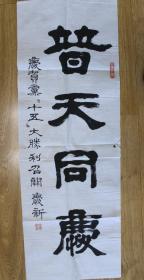 普天同慶
慶賀黨“十五”大勝利召開 慶新